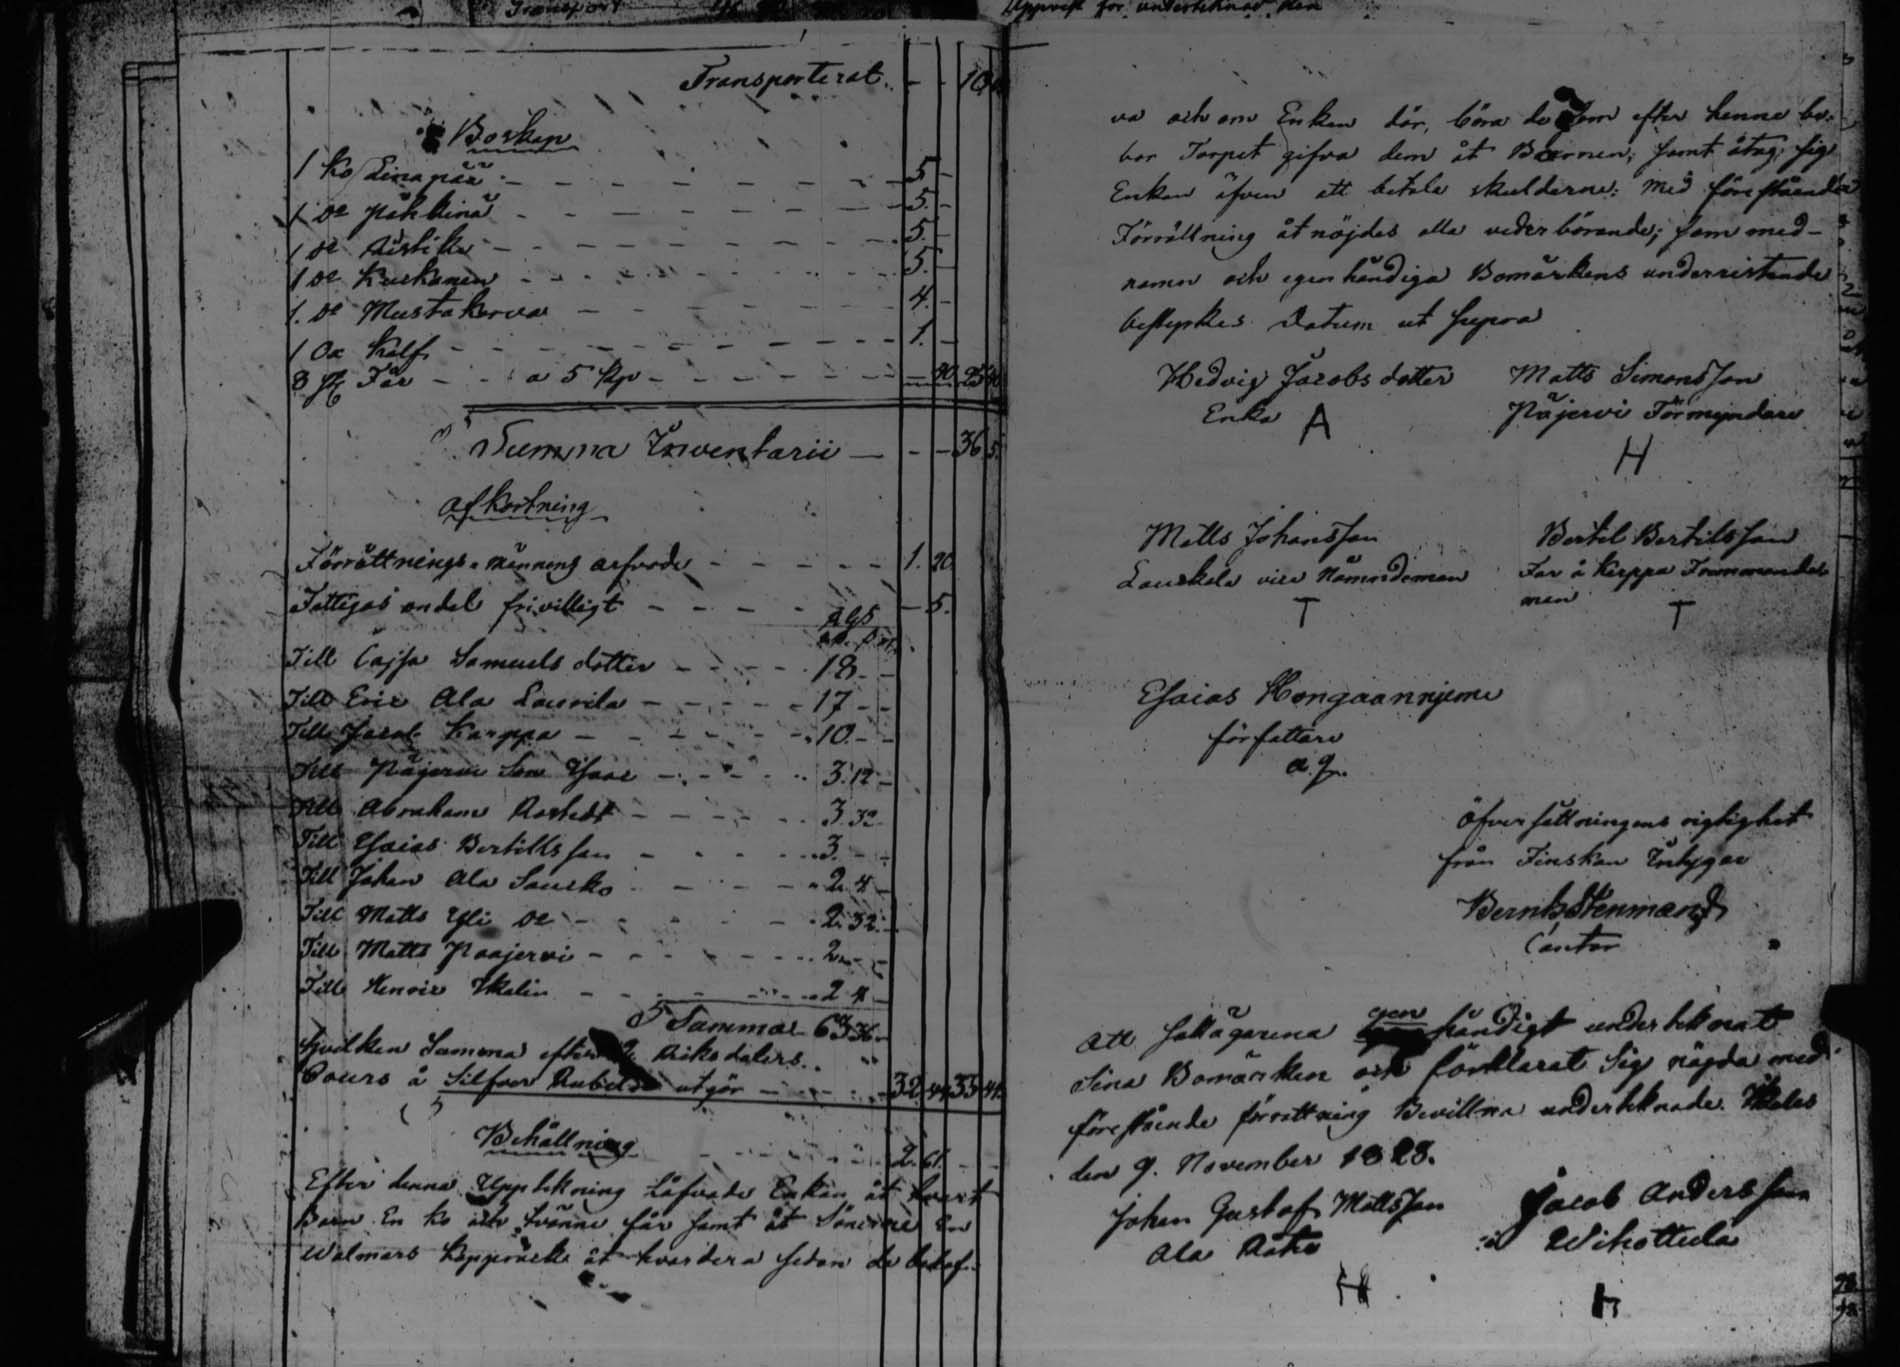 Transporterat. - - 10
Boskap
1 Ko Einapää - - - 5. -
1 Do påhkinä - - - 5. -
1 Do Ristike - - - 5. -
1 Do Kuskanen - - - 5. -
1. Do Mustakorva - - - 4. -
1 Ox Kalf - - - 1. -
8 st Får - - a 5 Kop - - - 40. 25 40
Summa Inventarii - - - 36 5.
Afkortning
Förrättnings männens arfvode - - - 1. 20
Fattigas andel frivilligt - - - 5.
RGS
Till Cajsa Samuels dotter - - - 18 - -
Till Eric Ala Laurila - - - 17 - -
Till Jacob Karppa - - - 10. - -
Till Päjervi Son Isaac - - - 3. 12 -
Till Abraham - - - 3 32
Till Esaias Bertillsson - - - 3. - -
Till Johan Ala Sausko - - - 2. 4 -
Till Matts Yli Do - - - 2. 32. -
Till Matts Paajervi - - - 2. - -
Till Henric - - - 2 4 -
Summa 63 36
hvilken Summa efter Riksdalers
Cours å Silfver Rubel utgör - - - 32 44 33 44
Behållning - - - 2. 61. - -
Efter denna Uppteckning låfvade Enkan åt hvart
Barn En ko och tvänne får samt åt Sönerne En
Walmars Kappråck åt hvardera sedan de
va och om Enkan dör, böra de som efter henne be-
bor Torpet gifva dem åt Barnen; samt åtog sig
Enkan äfven att betala skulderne: Med föreståendte
Förrättning åtnöjdes alla vederbörande; som med
namn och egenhändiga Bomärkens underristande
bestyrkes Datum ut supra
Hedvig Jacobs dotter Matts Simonsson
Enka A Päjervi Förmyndare
H
Matts Johansson Bertel Bertilsson
Lauskala vice Nämndeman Far å Karppa Frammande
man
T T
Esaias Hongaannjemi
författare
Öfversättningens rigtighet
från Finskan Intygar
Bernh Stenmand
Cantor
Att Sakägarena egenhändigt undertecknat
Sina Bomärken och förklarat Sig nögda med
förestående förrättning Bevittna undertecknade.
den 9. November 1828.
Johan Gustaf Mattsson Jacob Andersson
Ala Wihottula
H H